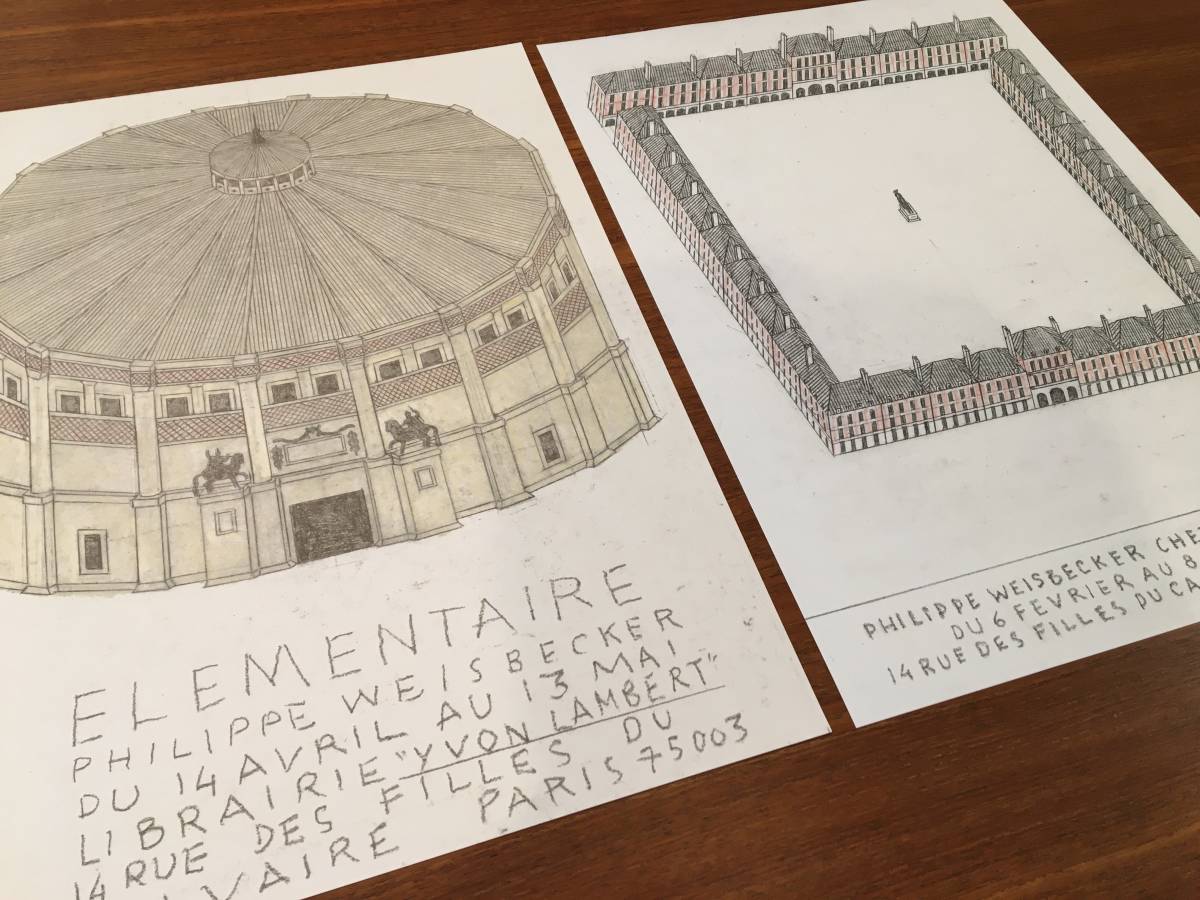 ELEMENTAIRE
PHILIPPE WEISBECKER
DU 14 AVRIL AU 13 MAI
LIBRAIRIE "YVON LAMBERT"
14 RUE DES FILLES DU
LVAIRE PARIS 75003
PHILIPPE WEISBECKER CHE
DU 6 FEVRIER AU 8
14 RUE DES FILLES DU CA